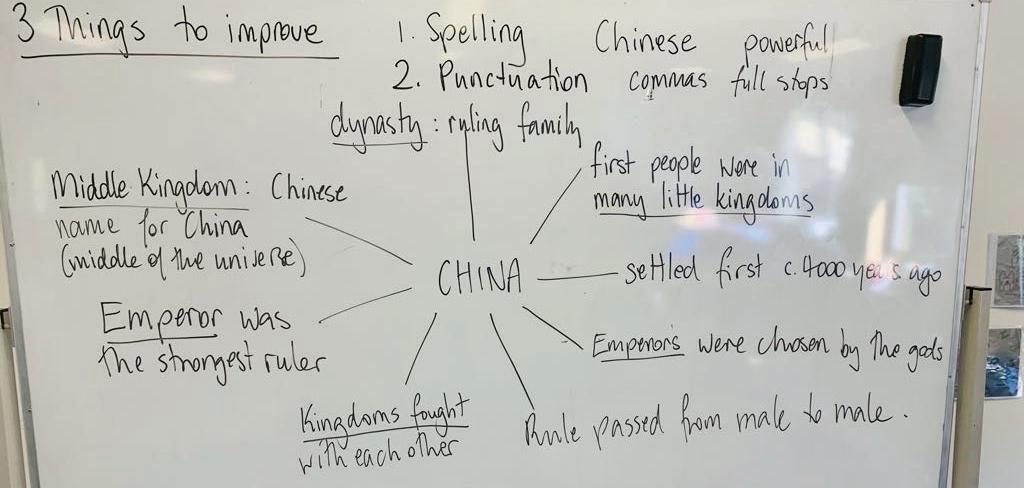 3 Things to improve
1. Spelling Chinese powerful
2. Punctuation commas full stops
dynasty : ruling family
Middle Kingdom : Chinese
name for China
(middle of the universe)
first people were in
many little kingdoms
CHINA
settled first c. 4000 years ago
Emperor was
the strongest ruler
Emperors were chosen by the gods
Kingdoms fought
with each other
Rule passed from male to male.